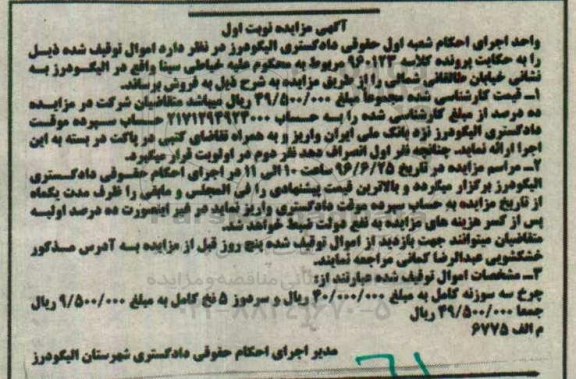 آگهی مزایده نوبت اول
واحد اجرای احکام شعبه اول حقوقی دادگستری الیگودرز در نظر دارد اموال توقیف شده ذیل
را به حکایت پرونده کلاسه ۹۶۰۱۲۳ مربوط به محکوم علیه خیاطی سینا واقع در الیگودرز به
نشانی خیابان طالقانی شمالی را از طریق مزایده به شرح ذیل به فروش برساند.
۱ـ قیمت کارشناسی شده مجموعاً مبلغ ۴۹/۵۰۰/۰۰۰ ریال میباشد متقاضیان شرکت در مزایده
ده درصد از مبلغ کارشناسی شده را به حساب ۲۱۷۱۲۹۴۹۲۴۰۰۰ حساب سپرده موقت
دادگستری الیگودرز نزد بانک ملی ایران واریز و به همراه تقاضای کتبی در پاکت در بسته به این
اجرا ارائه نماید. چنانچه نفر اول انصراف دهد نفر دوم در اولویت قرار میگیرد.
۲ـ مراسم مزایده در تاریخ ۹۶/۶/۲۵ ساعت ۱۰ الی ۱۱ در اجرای احکام حقوقی دادگستری
الیگودرز برگزار میگردد و بالاترین قیمت پیشنهادی را فی المجلس و مابقی را ظرف مدت یکماه
از تاریخ مزایده به حساب سپرده موقت دادگستری واریز نماید در غیر اینصورت ده درصد اولیه
پس از کسر هزینه های مزایده به نفع دولت ضبط خواهد شد.
متقاضیان میتوانند جهت بازدید از اموال توقیف شده پنج روز قبل از مزایده به آدرس مذکور
خشکشویی عبدالرضا کمانی مراجعه نمایند.
۳ـ مشخصات اموال توقیف شده عبارتند از:
چرخ سه سوزنه کامل به مبلغ ۴۰/۰۰۰/۰۰۰ ریال و سردوز ۵ نخ کامل به مبلغ ۹/۵۰۰/۰۰۰ ریال
جمعا ۴۹/۵۰۰/۰۰۰ ریال
م الف ۶۷۷۵
مدیر اجرای احکام حقوقی دادگستری شهرستان الیگودرز